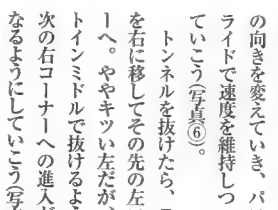 の向きを変えていき、パ
ライドで速度を維持しつ
ていこう(写真⑥)。
トンネルを抜けたら、
を右に移してその先の左
ーへ。ややキツい左だが、
トインミドルで抜けるよ
次の右コーナーへの進入が
なるようにしていこう(写